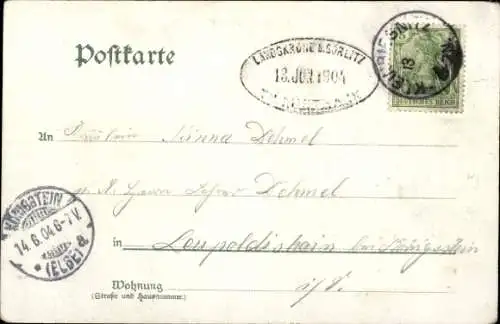 Postkarte
LANDSKRONE B. GÖRLITZ
13. JUN. 1904
KLEIN BIESNITZ
13
DEUTSCHES REICH
An Fräulein Minna Dehmel
Herrn Lehrer Dehmel
KÖNIGSTEIN
14.6.04 6-7 V.
* (ELBE) a
in Leupoldishain bei Königstein
Wohnung
(Straße und Hausnummer)
i/S.